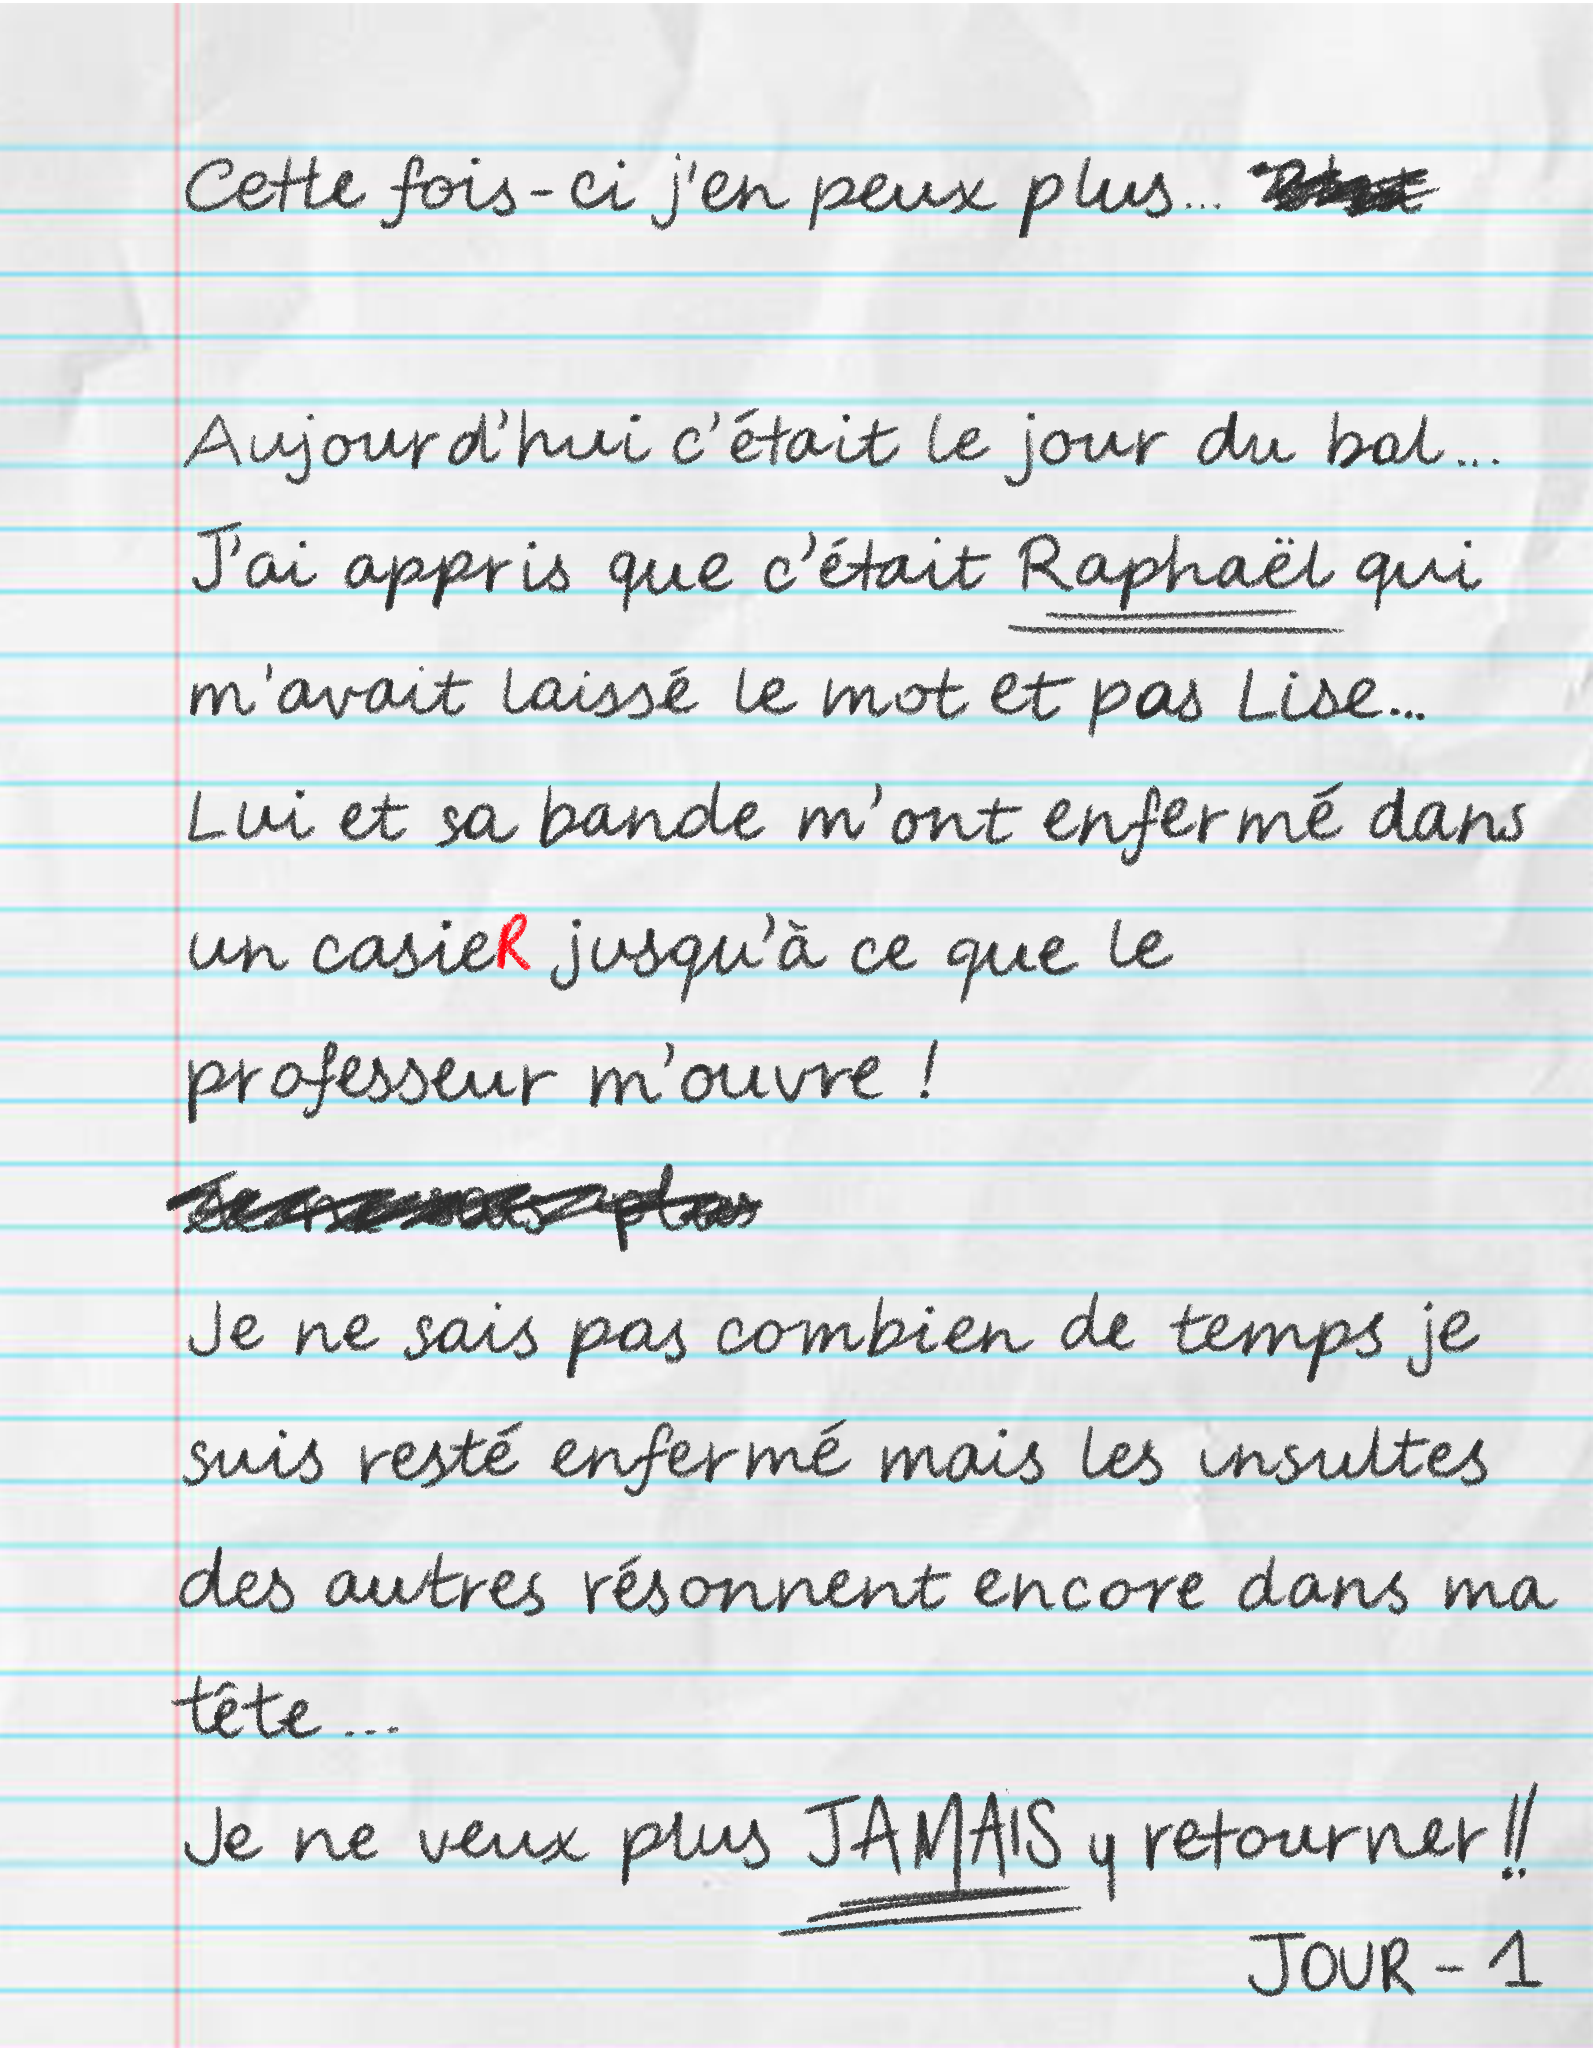 Cette fois-ci j'en peux plus...
Aujourd'hui c'était le jour du bal...
J'ai appris que c'était Raphaël qui
m'avait laissé le mot et pas Lise...
Lui et sa bande m'ont enfermé dans
un casieR jusqu'à ce que le
professeur m'ouvre !
Je ne sais pas combien de temps je
suis resté enfermé mais les insultes
des autres résonnent encore dans ma
tête...
Je ne veux plus JAMAIS y retourner !!
JOUR - 1